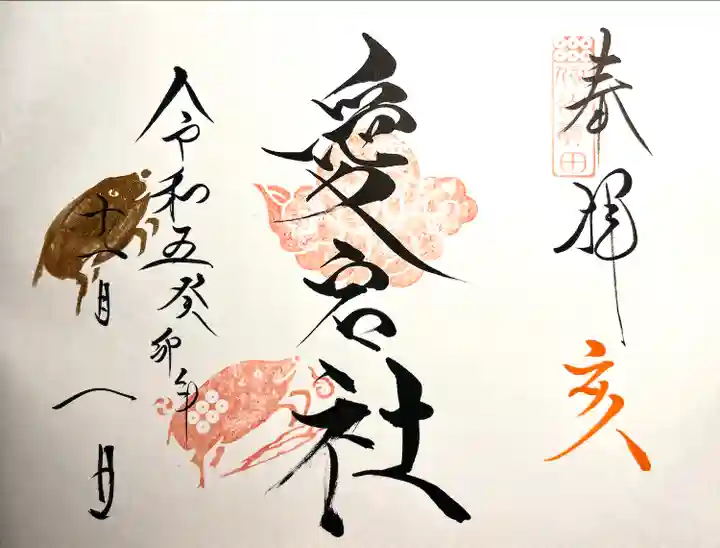 奉拝
亥
愛宕社
令和五癸卯年
十一月
一日